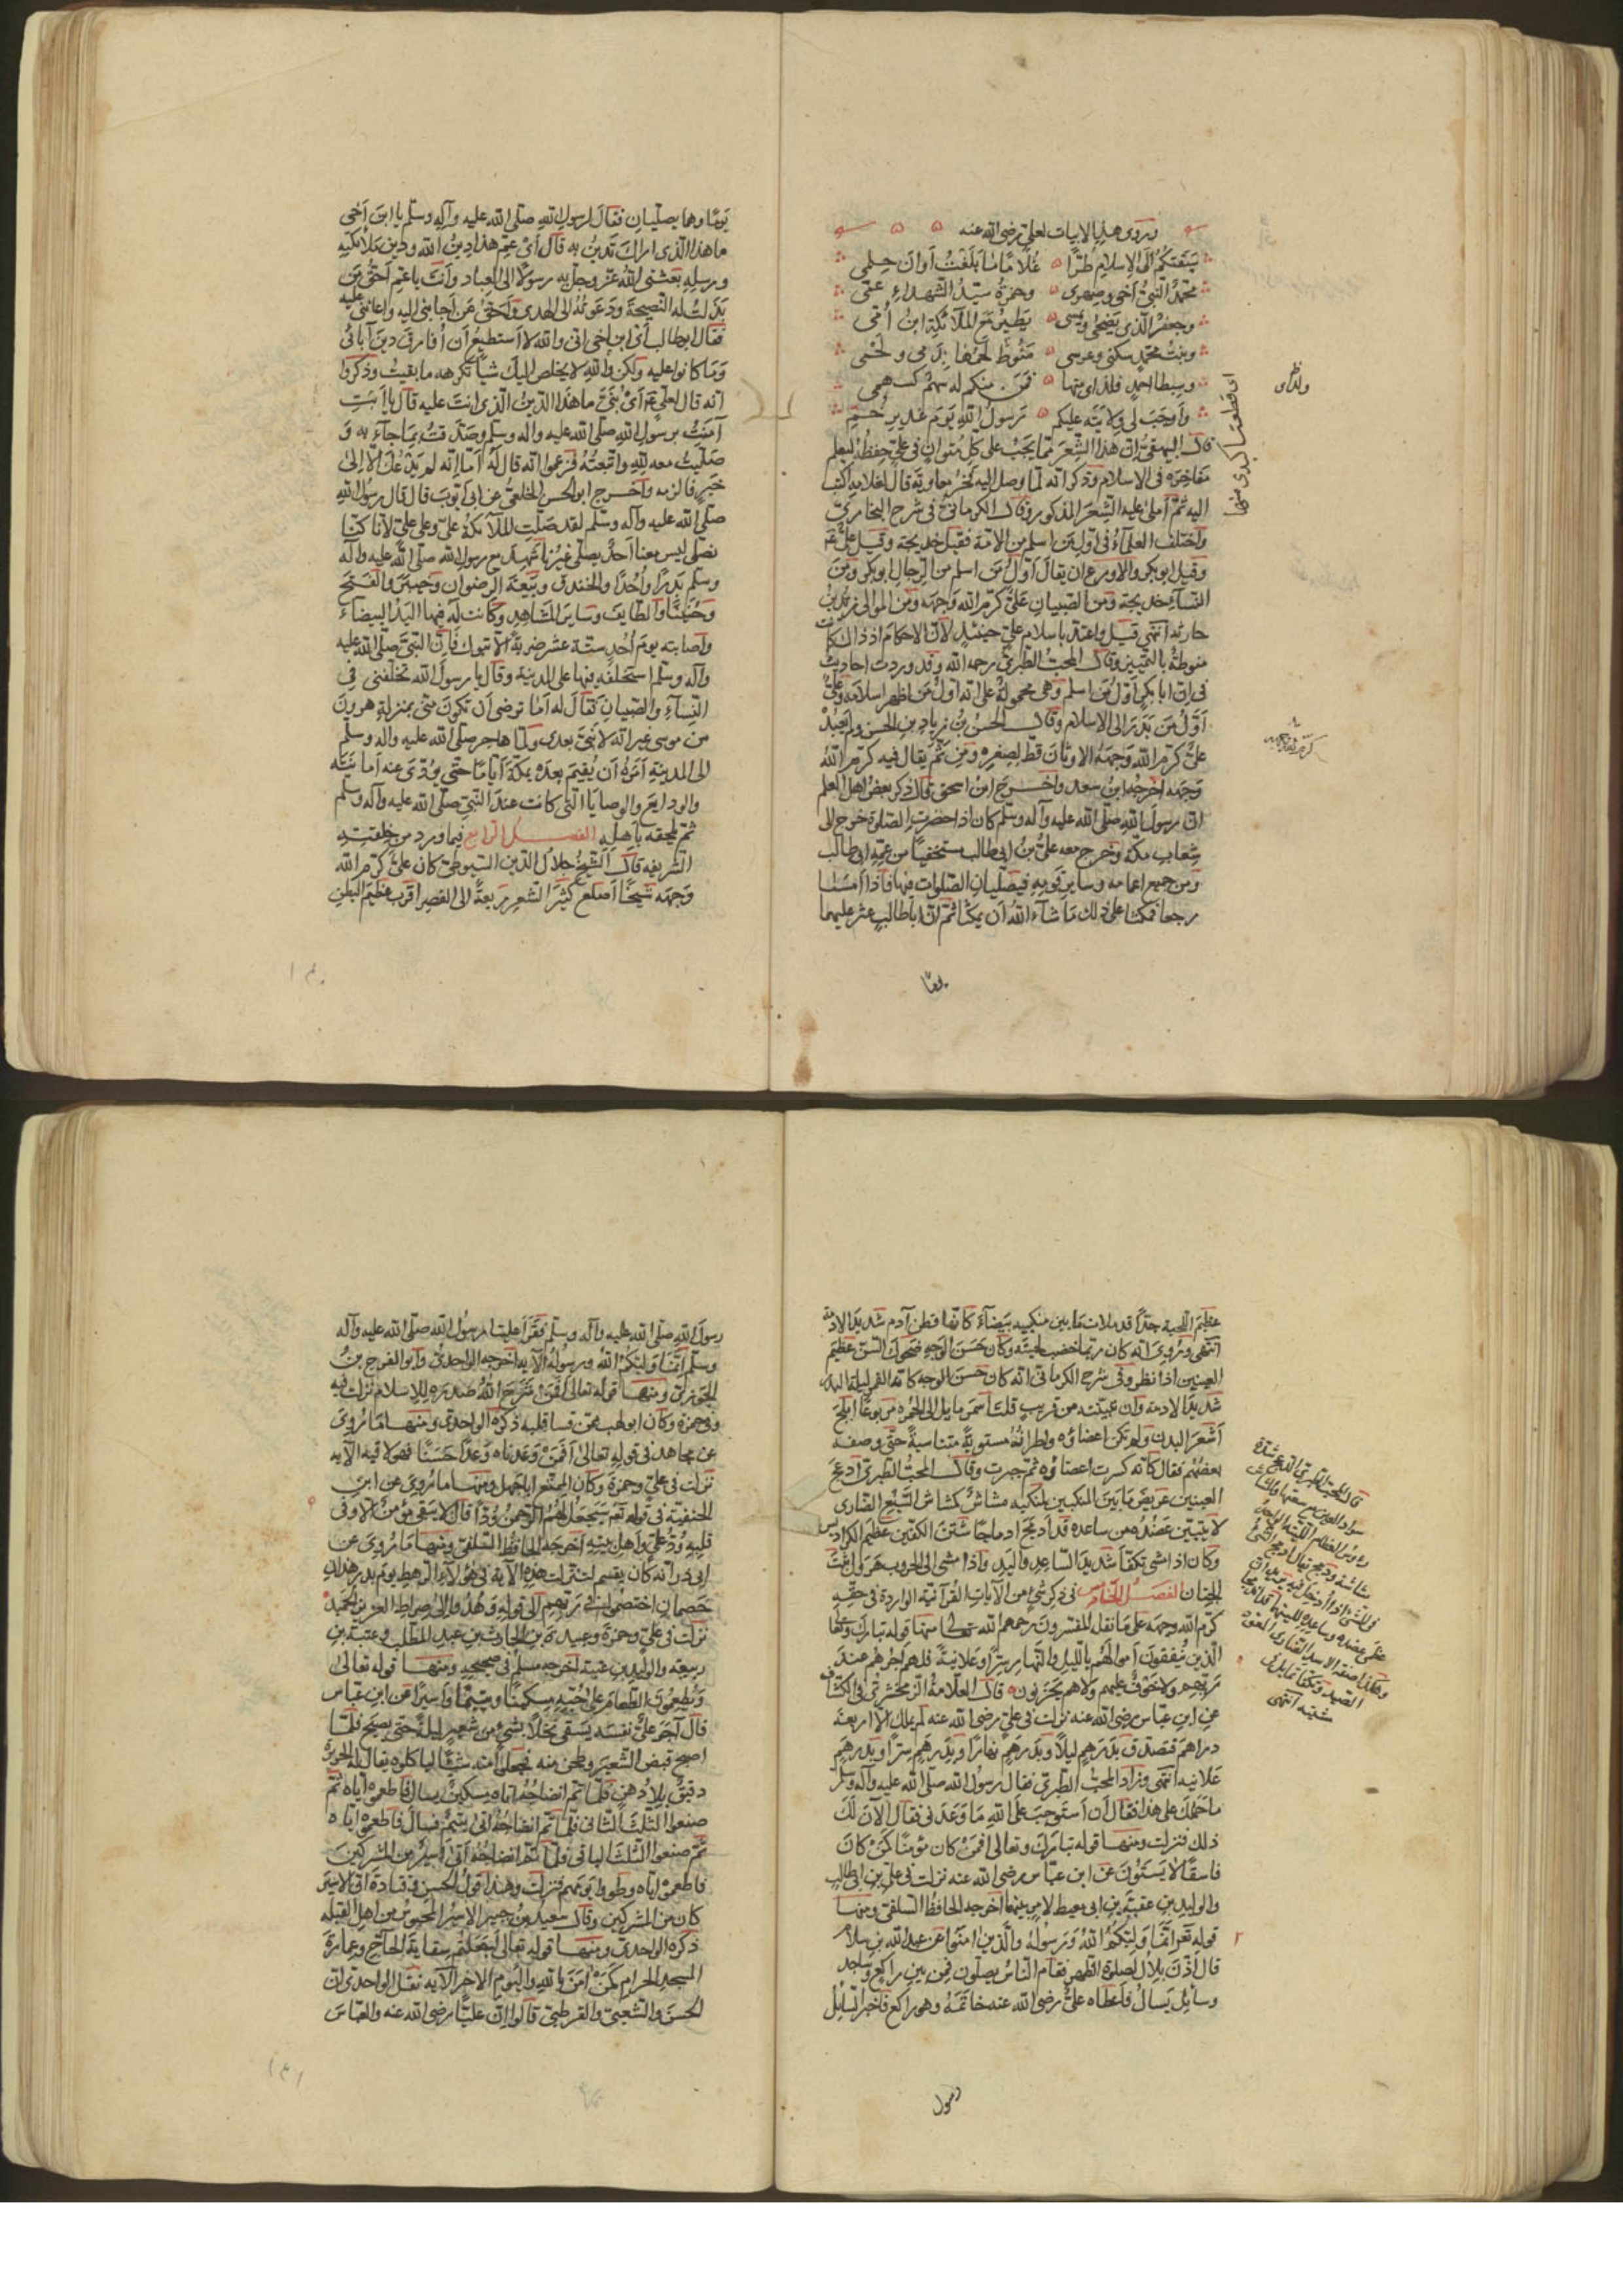 وروى هذه الابيات لعلي رضى الله عنه
سبقتكم الى الاسلام طرًّا غلامًا ما بلغت أوان حلمى
محمد النبي أخى وصهرى وحمزة سيّد الشهداء عمّى
وجعفر الذى يضحى ويمسى يطير مع الملائكة ابن أمّى
وبنت محمد سكنى وعرسى منوط لحمها بدمى ولحمى
وسبطا احمد ولداى منها فمن منكم له سهم كسهمى
وأوجب لى ولايته عليكم رسول الله يوم غدير خمّ
قال البيهقى ان هذا الشعر مما يجب على كل متوان فى على حفظه ليعلم
مفاخره فى الاسلام وذكر انه لمّا وصل اليه فخر معاوية قال لغلامه اكتب
اليه ثمّ أملى عليه الشعر المذكور وقال الكرمانىّ فى شرح البخارىّ
واختلف العلماء فى اوّل من اسلم من الامّة فقيل خديجة وقيل علىّ
وقيل ابو بكر والاورع ان يقال أوّل من اسلم من الرجال ابو بكر ومن
النساء خديجة ومن الصبيان علىّ كرّم الله وجهه ومن الموالى زيد بن
حارثه انتهى قيل واعتدّ باسلام علىّ حينئذ لانّ الاحكام اذ ذاك كانت
منوطة بالتمييز وقال المحبّ الطبرىّ رحمه الله وقد وردت احاديث
فى انّ ابا بكر أوّل من اسلم وهى محمولة على انه اوّل من اظهر اسلامه وعلىّ
أوّل من بدر الى الاسلام وقال الحسن بن زياد بن الحسن ولم يعبد
علىّ كرّم الله وجهه الاوثان قطّ لصغره ومن ثمّ يقال فيه كرّم الله
وجهه أخرجه ابن سعد واخرج ابن اسحق قال ذكر بعض اهل العلم
انّ رسول الله صلّى الله عليه وآله وسلّم كان اذا حضرت الصلوة خرج الى
شعاب مكّة وخرج معه علىّ بن ابى طالب مستخفيًا من عمّه ابى طالب
ومن جميع اعمامه وساير قومه فيصلّيان الصلوات فيها فاذا أمسيا
رجعا فمكثا على ذلك ما شاء الله أن يمكثا ثمّ انّ ابا طالب عثر عليهما
يومًا
ولداى
يومًا وهما يصلّيان فقال لرسول الله صلّى الله عليه وآله وسلّم يا ابن أخى
ما هذا الّذى اراك تدين به قال أى عمّ هذا دين الله ودين ملائكته
ورسله بعثنى الله عزّ وجلّ به رسولا الى العباد وأنت يا عمّ أحقّ من
بذلت له النصيحة ودعوته الى الهدى وأحقّ من أجابنى اليه واعاننى عليه
فقال ابو طالب أى ابن اخى انى والله لا استطيع أن أفارق دين آبائى
وما كانوا عليه ولكن والله لا يخلص اليك شيأ تكرهه ما بقيت وذكروا
انه قال لعلى أى بنىّ ما هذا الدين الّذى انت عليه قال يا أبت
آمنت برسول الله صلّى الله عليه واله وسلّم وصدّقت بما جاء به و
صلّيت معه لله واتبعته فزعموا انه قال له أما انه لم يدعك الّا الى
خير فالزمه واخرج ابو الحسن الخلعىّ عن ابى أيّوب قال قال رسول الله
صلّى الله عليه وآله وسلّم لقد صلّت الملائكة علىّ وعلى علىّ لانّا كنّا
نصلّى ليس معنا أحد يصلّى غيرنا شهد مع رسول الله صلّى الله عليه واله
وسلّم بدرًا وأحدًا والخندق وبيعة الرضوان وخيبر والفتح
وحنينًا والطايف وساير المشاهد وكانت له فيها اليد البيضاء
واصابته يوم أحد ستّة عشر ضربة الّا تبوك فانّ النبىّ صلّى الله عليه
واله وسلّم استخلفه فيها على المدينة وقال يا رسول الله تخلّفنى فى
النساء والصّبيان فقال له أما ترضى أن تكون منّى بمنزلة هرون
من موسى غير انه لا نبىّ بعدى ولمّا هاجر صلّى الله عليه واله وسلّم
الى المدينة أمره أن يقيم بعده بمكّة أيّامًا حتّى يؤدّى عنه أمانته
والودايع والوصايا الّتى كانت عند النبىّ صلّى الله عليه وآله وسلّم
ثمّ يلحقه باهله الفصل الرابع فيما ورد من خلقته
الشريفه قال الشيخ جلال الدين السيوطىّ كان علىّ كرّم الله
وجهه شيخًا أصلع كثير الشعر ربعةً الى القصر اقرب عظيم البطن
عظيم اللحية جدًّا قد ملات ما بين منكبيه بيضاء كانّها قطن آدم شديد الادمة
انتهى وروى انه كان ربما خضب لحيته وكان حسن الوجه ضحوك السنّ عظيم
العينين اذا نظر وفى شرح الكرمانى انه كان حسن الوجه كانّه القمر ليلة البدر
شديد الادمة وان تبينته من قريب قلت أسمر مايل الى الحمرة مربوعًا ابلج
أشعر البدن ولم تكن اعضاؤه واطرافه مستوية متناسبة حتّى وصفه
بعضهم فقال كانه كسرت اعضاؤه ثم جبرت وقال المحبّ الطبرىّ أدعج
العينين عريض ما بين المنكبين لمنكبيه مشاش كمشاش السّبع الضّارى
لا يتبيّن عضده من ساعده قد أدمج ادماجًا شثن الكفّين عظيم الكراديس
وكان اذا مشى تكفّأ شديد السّاعد واليد واذا مشى الى الحروب هرول ثبت
الجنان الفصل الخامس فى ذكر شىء من الآيات القرآنية الواردة فى حقّه
كرّم الله وجهه على ما نقل المفسّرون رحمهم الله تعالى منها قوله تبارك وتعالى
الّذين ينفقون أموالهم بالليل والنّهار سرًّا وعلانيةً فلهم أجرهم عند
ربّهم ولا خوف عليهم ولا هم يحزنون قال العلّامة الزمخشرىّ فى الكشاف
عن ابن عبّاس رضى الله عنه نزلت فى علىّ رضى الله عنه لم يملك الّا اربعة
دراهم فتصدّق بدرهم ليلاً وبدرهم نهارًا وبدرهم سرًّا وبدرهم
علانيه انتهى وزاد المحبّ الطبرىّ فقال رسول الله صلّى الله عليه وآله وسلّم
ما حملك على هذا فقال أن أستوجب على الله ما وعدنى فقال الآن لك
ذلك فنزلت ومنها قوله تبارك وتعالى أفمن كان مؤمنًا كمن كان
فاسقًا لا يستوون عن ابن عبّاس رضى الله عنه نزلت فى علىّ بن ابى طالب
والوليد بن عقبة بن ابى معيط لامر بينهما أخرجه الحافظ السلفى ومنها
قوله تع انّما وليّكم الله ورسوله والّذين امنوا عن عبد الله بن سلام
قال أذّن بلال لصلوة الظهر فقام النّاس يصلّون فمن بين راكع وساجد
وسايل يسأل فأعطاه علىّ رضى الله عنه خاتمه وهو راكع فأخبر السايل
رسول
قال المحب الطبرى
رسول الله صلّى الله عليه وآله وسلّم فقرأ علينا رسول الله صلّى الله عليه وآله
وسلّم انّما وليّكم الله ورسوله الآيه أخرجه الواحدىّ وابو الفرج بن
الجوزىّ ومنها قوله تعالى أفمن شرح الله صدره للاسلام نزلت فيه
وفى حمزة وكان ابو لهب ممّن قسا قلبه ذكره الواحدى ومنها ما روى
عن مجاهد فى قوله تعالى أفمن وعدناه وعدًا حسنًا فهو لاقيه الآيه
نزلت فى علىّ وحمزة وكان الممتّع ابا جهل ومنها ما روى عن ابن
الحنفيّة فى قوله تع سيجعل لهم الرّحمن ودّا قال لا يبقى مؤمن الّا وفى
قلبه ودّ لعلىّ وأهل بيته أخرجه الحافظ السّلفى ومنها ما روى عن
ابى ذرّ انه كان يقسم لنزلت هذه الآية فى هؤلاء الرهط يوم بدر هذان
خصمان اختصموا فى ربّهم الى قوله وهدوا الى صراط العزيز الحميد
نزلت فى علىّ وحمزة وعبيدة بن الحارث بن عبد المطّلب وعتبة بن
ربيعة والوليد بن عتبة أخرجه مسلم فى صحيحه ومنها قوله تعالى
ويطعمون الطّعام على حبّه مسكينًا ويتيمًا وأسيرًا عن ابن عبّاس
قال آجر علىّ نفسه يسقى نخلاً بشىء من شعير ليلةً حتى يصبح فلمّا
اصبح قبض الشّعير وطحن منه فجعلوا منه شيئًا لياكلوه يقال له الحريرة
دقيق بلا دهن فلمّا تمّ انضاجه أتاه مسكين يسال فاطعموه ايّاه ثمّ
صنعوا الثلث الثّانى فلمّا تمّ انضاجه اتى يتيم فسأل فاطعموه ايّاه
ثمّ صنعوا الثلث الباقى فلمّا تمّ انضاجه أتى أسير من المشركين
فاطعموه ايّاه وطووا يومهم فنزلت وهذا قول الحسن وقتادة انّ الاسير
كان من المشركين وقال سعيد بن جبير الاسير المحبوس من اهل القبلة
ذكره الواحدى ومنها قوله تعالى أجعلتم سقاية الحاجّ وعمارة
المسجد الحرام كمن آمن بالله واليوم الآخر الآيه نقل الواحدى انّ
الحسن والشعبىّ والقرظىّ قالوا انّ عليّا رضى الله عنه والعبّاس